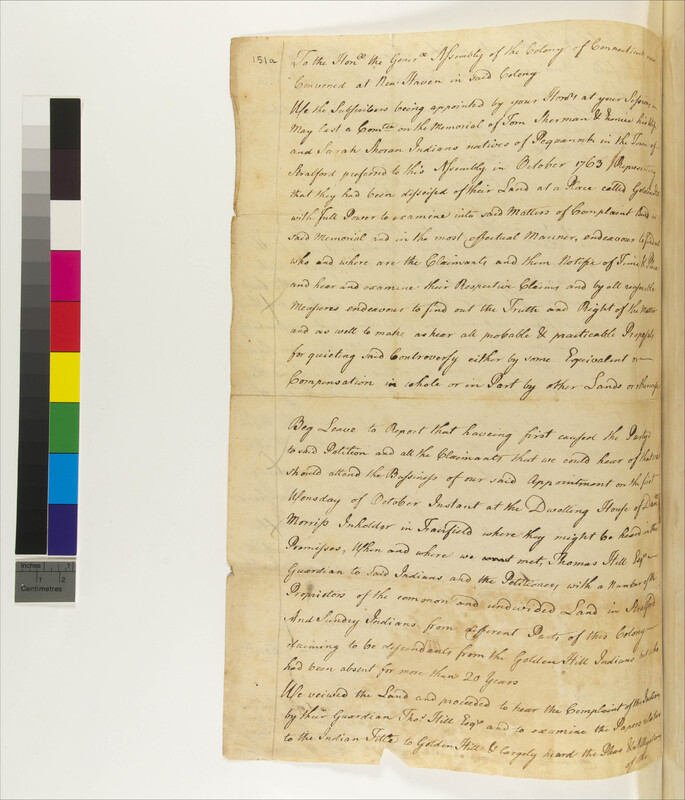 151a
To the Honble the Generll Assembly of the Colony of Connecticut now
Convened at New Haven in said Colony
We the Subscribers being appointed by your Honrs at your Session in
May last a Comtee on the Memorial of Tom Sherman & Eunice his Wife
and Sarah Shoran Indians natives of Pequannock in the Town of
Stratford preferred to this Assembly in October 1763 / Representing
that they had been disseised of their Land at a Place called Golden Hill
with full Power to examine into said Matters of Complaint in
said Memorial and in the most effectual Manner, endeavour to find out
who and where are the Claimants and them Notifie of Time & Place
and hear and examine their Respective Claims and by all reasonable
Measures endeavour to find out the Truth and Right of the Matter
and as well to make as hear all probable & practicable Proposals
for quieting said Controversy either by some Equivalent or
Compensation in whole or in Part by other Lands or otherwise
Beg Leave to Report that haveing first caused the Partys
to said Petition and all the Claimants that we could hear of that
should attend the Bussiness of our said Appointment on the first
Wensday of October Instant at the Dwelling House of Danll
Morriss Inholder in Fairfield where they might be heard in the
Premisses, When and where we met, Thomas Hill Esqr
Guardian to said Indians and the Petitioners, with a Number of the
Propriotors of the common and undivided Land in Stratford
And Sundry Indians from different Parts of this Colony
claiming to be descendants from the Golden Hill Indians but who
had been absent for more than 20 Years
We veiwed the Land and proceeded to hear the Complaint of the Indians
by their Guardian Thos Hill Esqr and to examine the Papers relative
to the Indian Title to Golden Hill & largely heard the Pleas & Allegations
of the